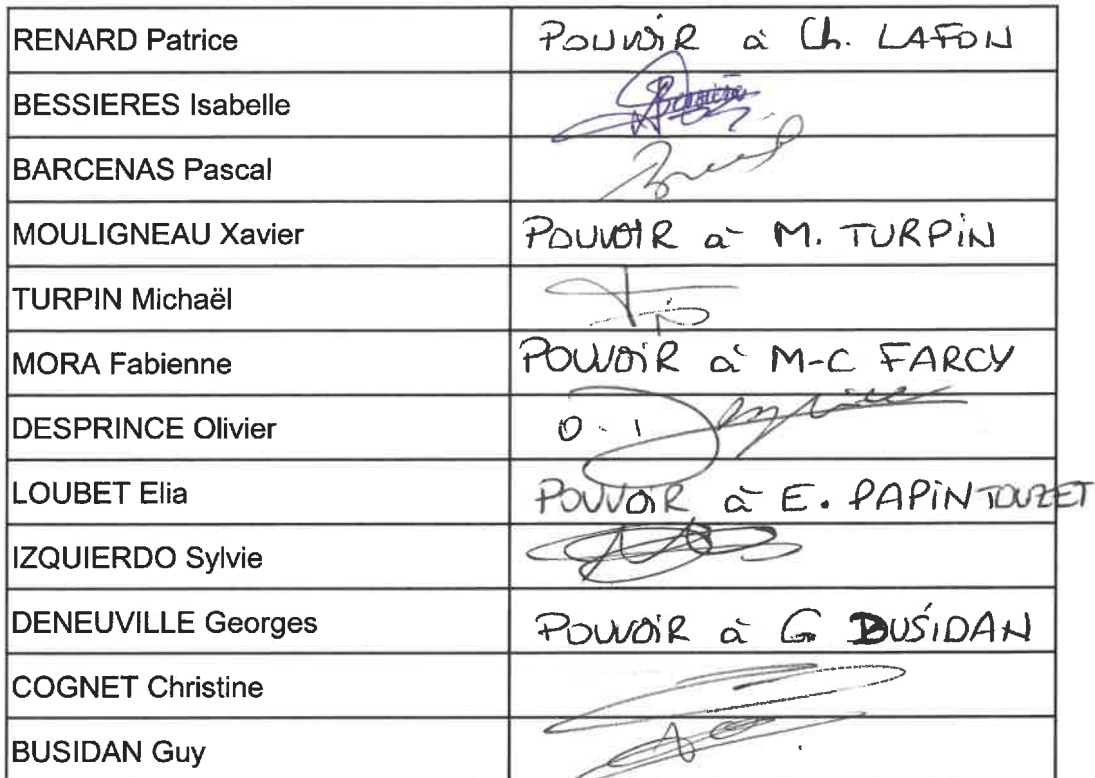 RENARD Patrice POUVOIR à Ch. LAFON
BESSIERES Isabelle
BARCENAS Pascal
MOULIGNEAU Xavier POUVOIR à M. TURPIN
TURPIN Michaël
MORA Fabienne POUVOIR à M-C FARCY
DESPRINCE Olivier
LOUBET Elia POUVOIR à E. PAPIN TOUZET
IZQUIERDO Sylvie
DENEUVILLE Georges POUVOIR à G BUSIDAN
COGNET Christine
BUSIDAN Guy